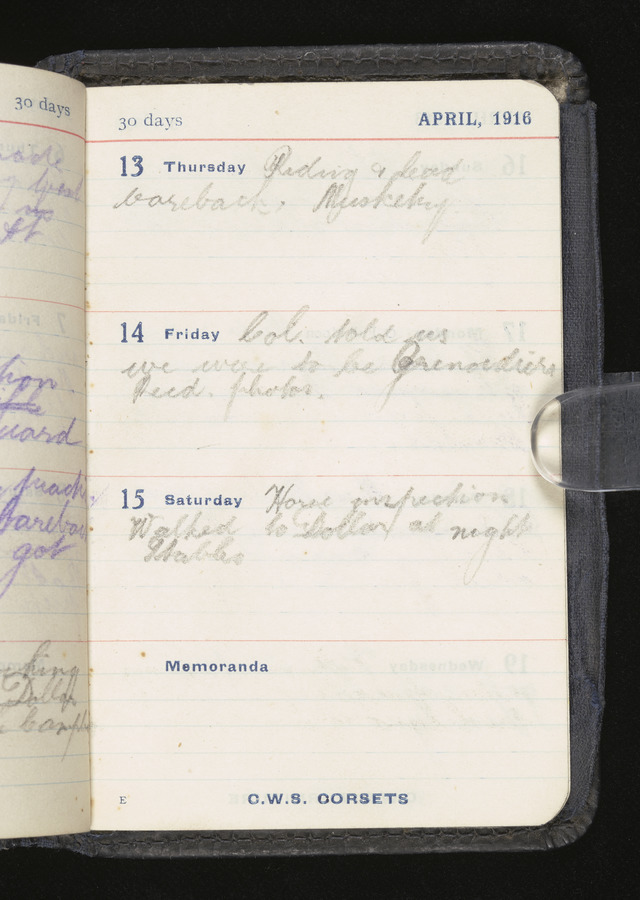 30 days
30 days
APRIL, 1916
13 Thursday Riding & lead
bareback. Musketry
14 Friday Col. told us
we were to be Grenadiers
Recd. photos.
15 Saturday Horse inspection
Walked to Dollar at night
Stables
Memoranda
E
C.W.S. CORSETS
uard
got
king
Dollar